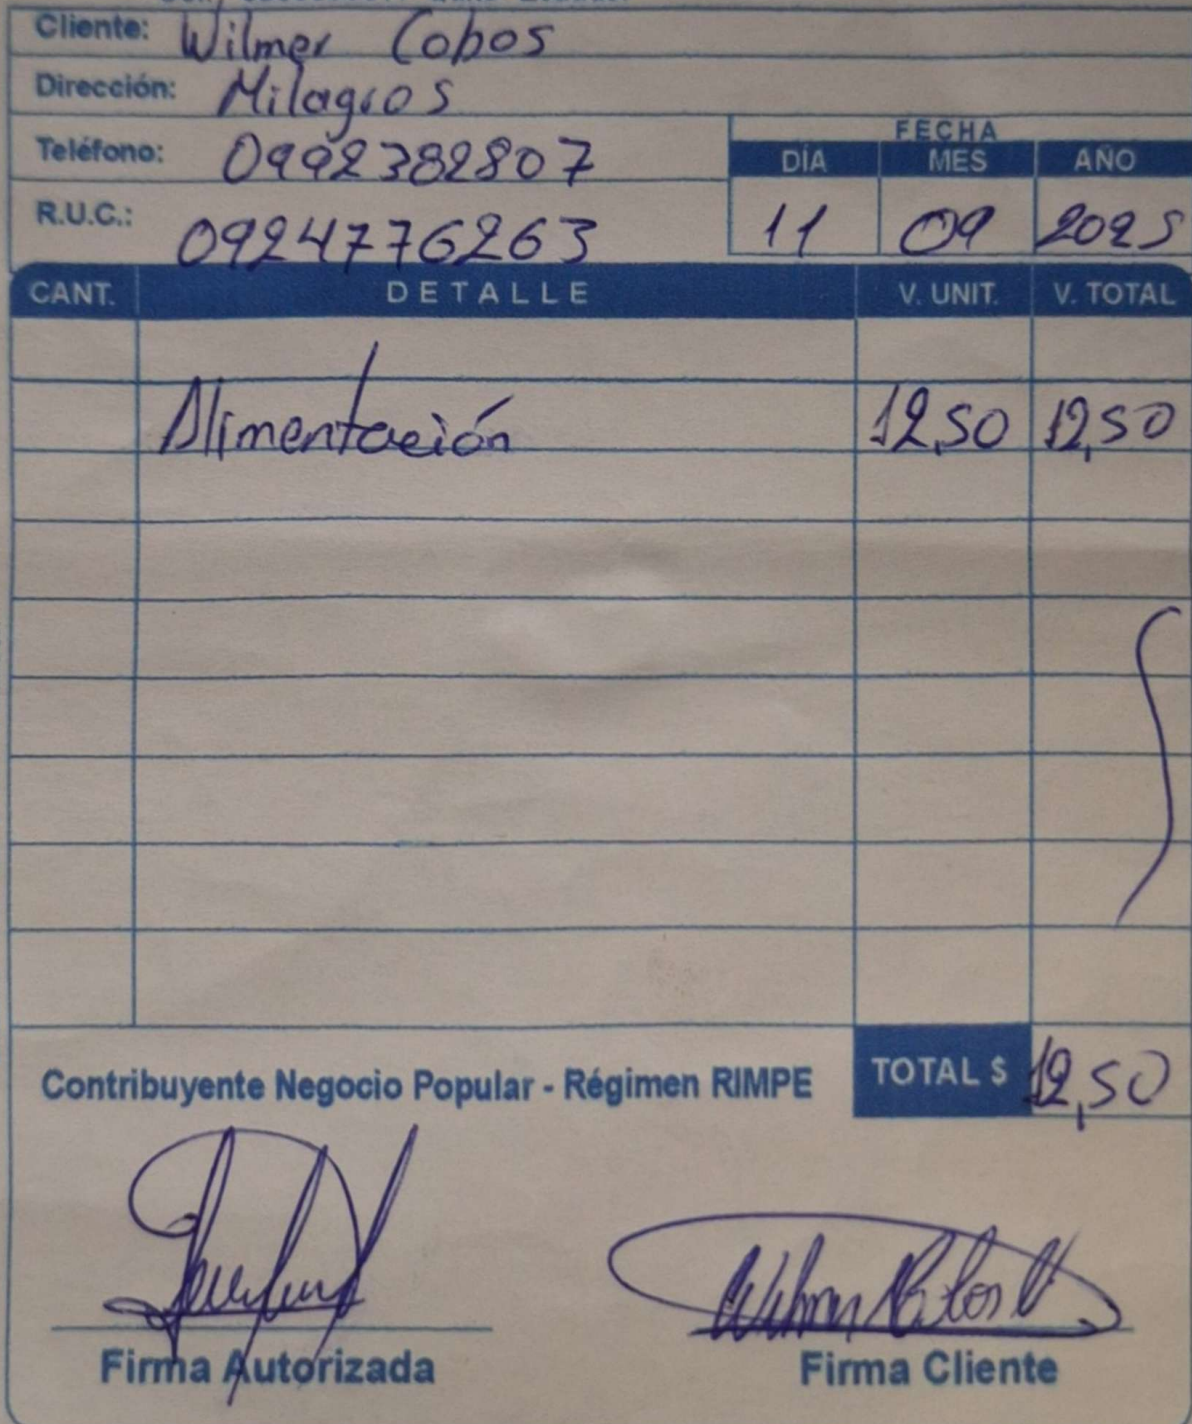 Cliente: Wilmer Cobos
Dirección: Milagros
Teléfono: 0992382807
FECHA
DÍA MES AÑO
R.U.C.: 0924776263
11 09 2025
CANT. DETALLE V. UNIT. V. TOTAL
Alimentación 12,50 12,50
Contribuyente Negocio Popular - Régimen RIMPE
TOTAL $ 12,50
Firma Autorizada Firma Cliente